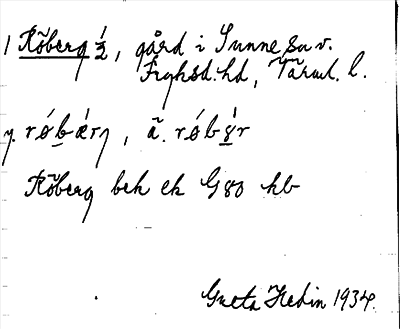 1 Röberg 1/2, gård i Sunne sn v.
Fryksd. hd, Värml. l.
y. rǿbærg, ä. rǿbẏr
Röberg beh ek G80 hb
Greta Hedin 1934.